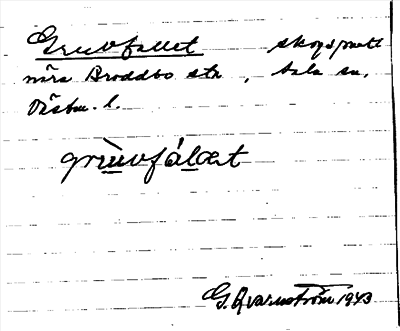 Gruvfallet skogsmark
nära Broddbo stn, Sala sn,
Västm. l.
grùvfál et
G. Qvarnström 1943